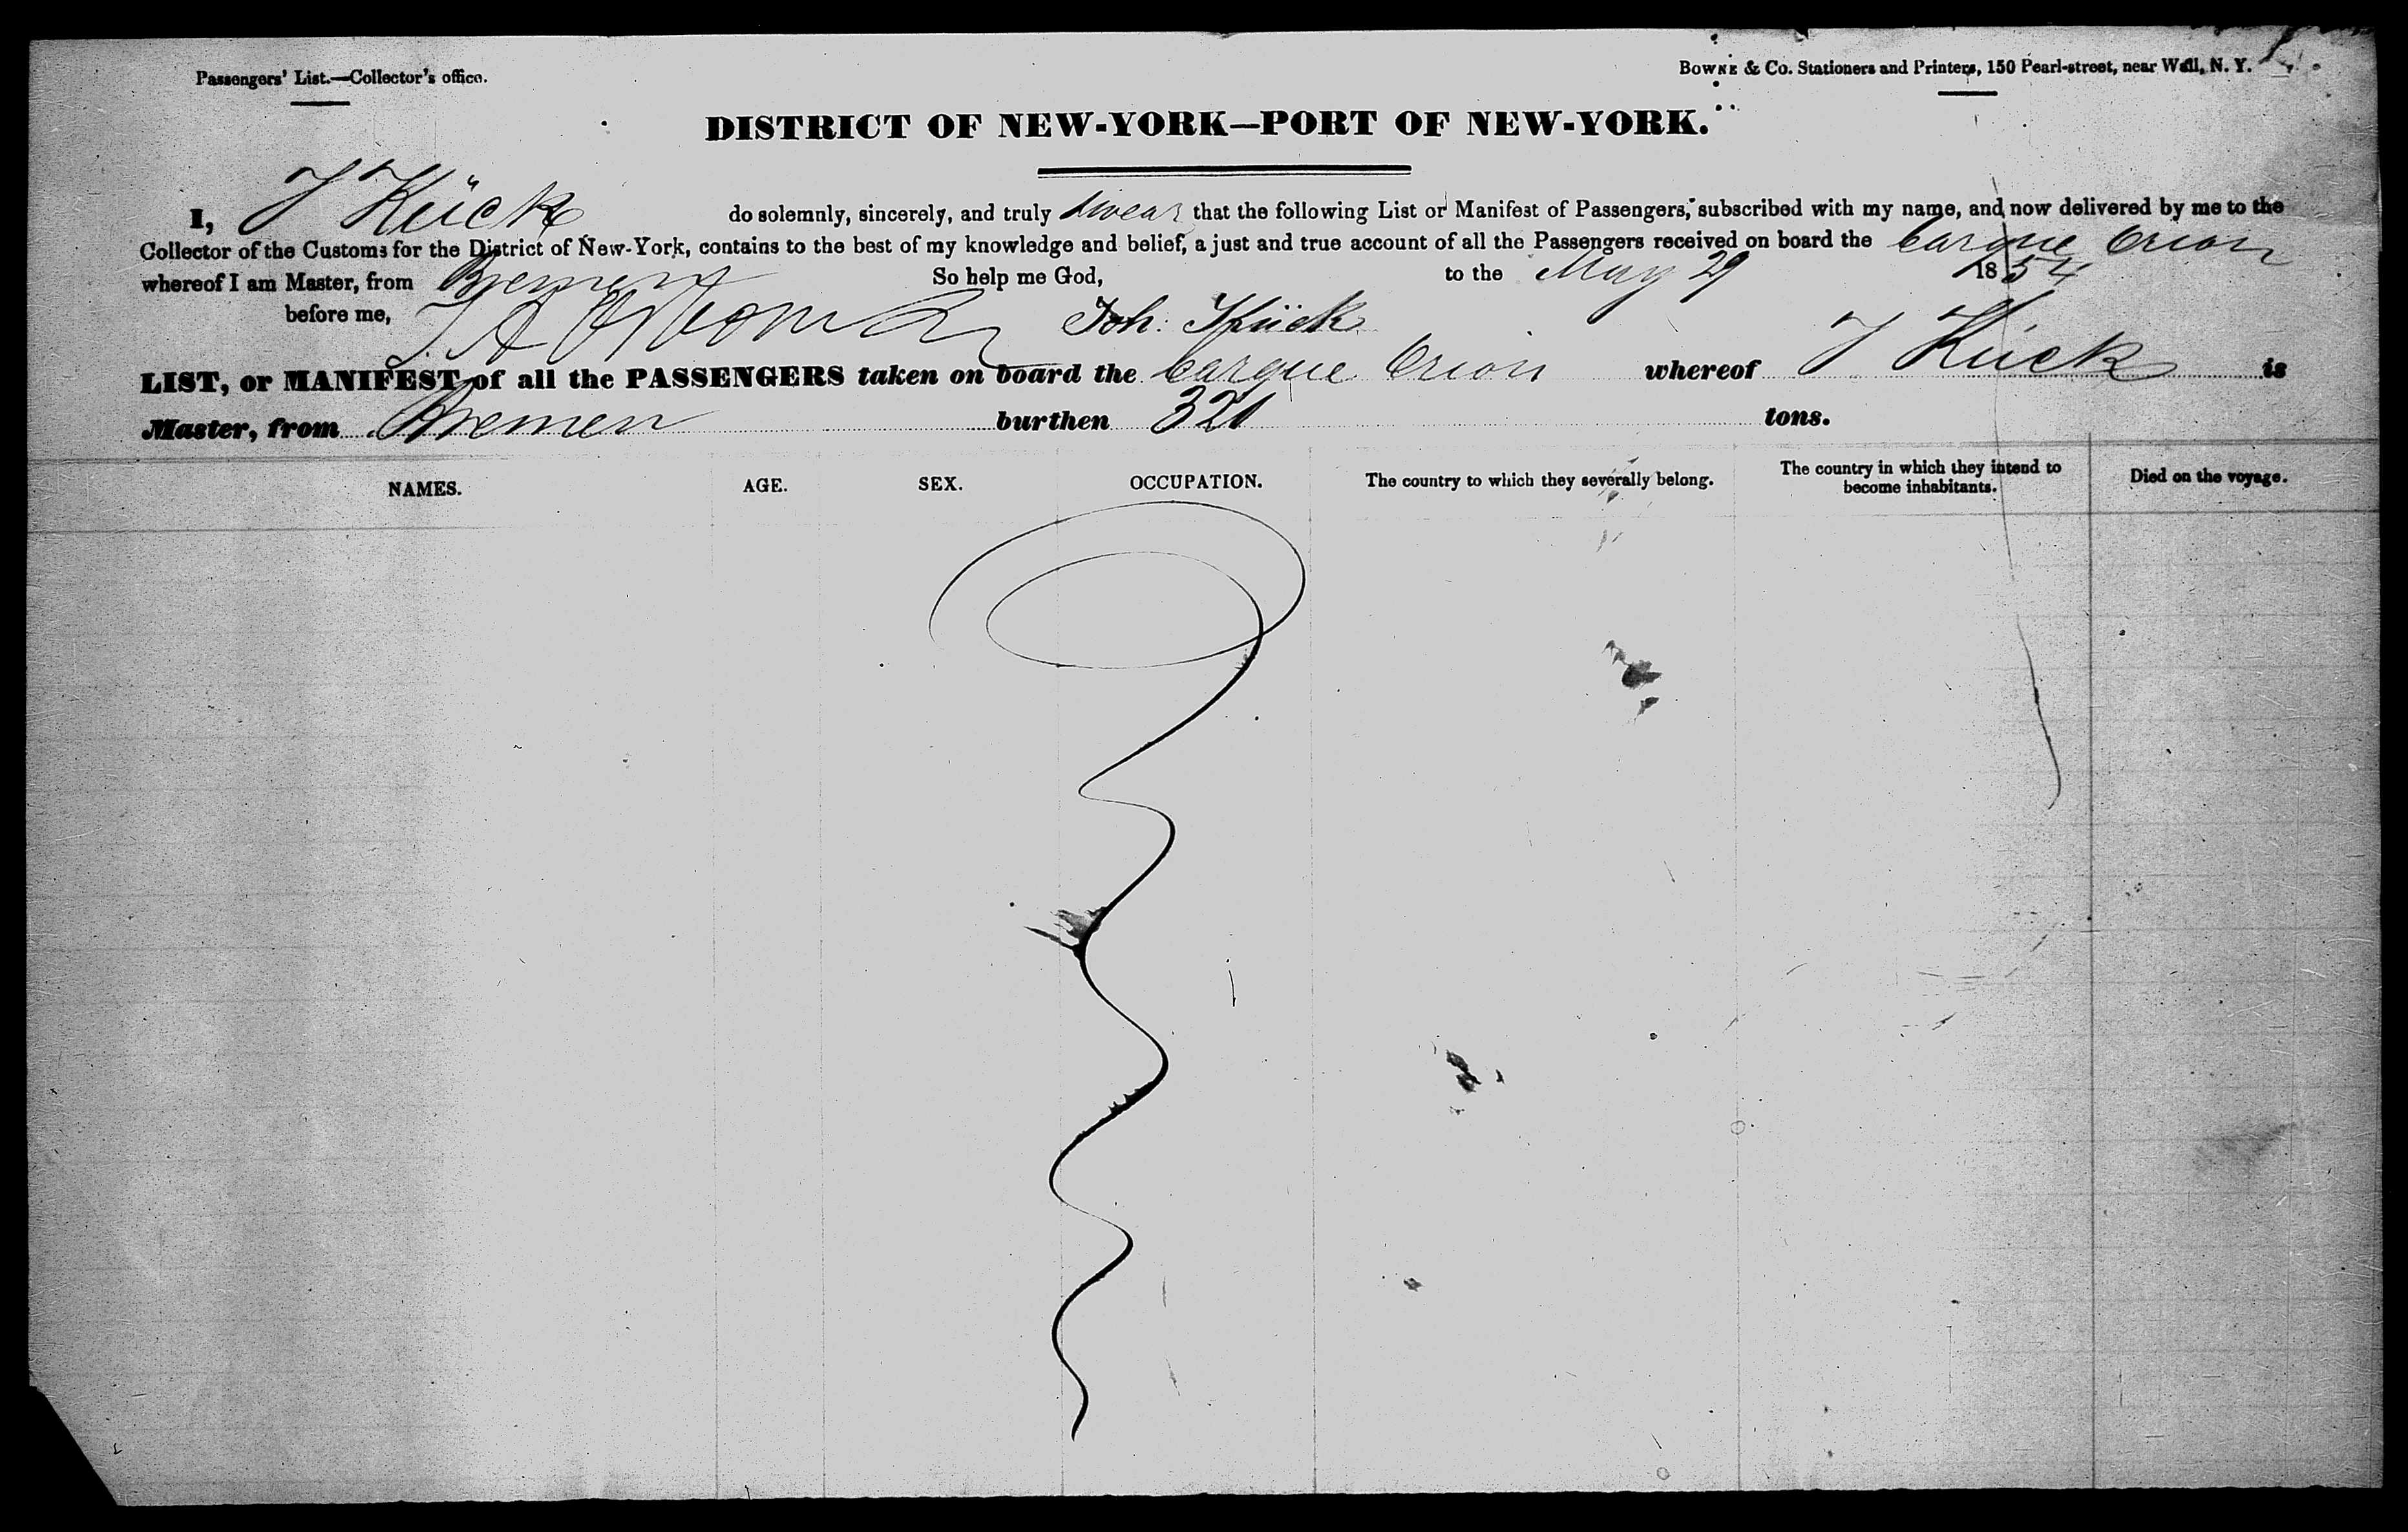 Passengers' List.—Collector's office.
BOWNE & Co. Stationers and Printers, 150 Pearl-street, near Wall, N. Y.
DISTRICT OF NEW-YORK—PORT OF NEW-YORK.
I, J Kück do solemnly, sincerely, and truly swear that the following List or Manifest of Passengers, subscribed with my name, and now delivered by me to the
Collector of the Customs for the District of New-York, contains to the best of my knowledge and belief, a just and true account of all the Passengers received on board the barque Orion
whereof I am Master, from Bremen So help me God, to the May 29 1854
before me, Joh. Kück
LIST, or MANIFEST of all the PASSENGERS taken on board the barque Orion whereof J Kück is
Master, from Bremen burthen 321 tons.
NAMES. AGE. SEX. OCCUPATION. The country to which they severally belong. The country in which they intend to become inhabitants. Died on the voyage.